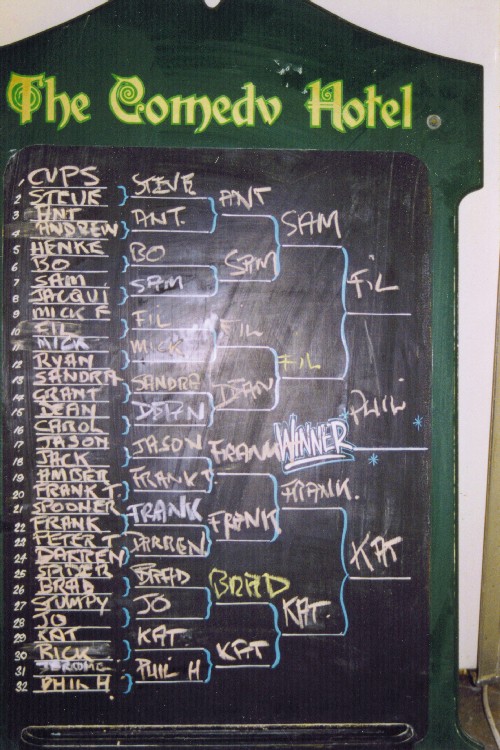 The Comedy Hotel
1 CUPS
2 STEVE
3 ANT
4 ANDREW
5 HENKE
6 BO
7 SAM
8 JACQUI
9 MICK F
10 FIL
11 MICK
12 RYAN
13 SANDRA
14 GRANT
15 DEAN
16 CAROL
17 JASON
18 JACK
19 AMBER
20 FRANK T.
21 SPOONER
22 FRANK
23 PETER T
24 DARREN
25
26 BRAD
27 STUMPY
28 JO
29 KAT
30 RICK
31
32 PHIL H.
STEVE
ANT.
BO
SAM
FIL
MICK
SANDRA
DEAN
JASON
FRANK T.
FRANK
DARREN
BRAD
JO
KAT
PHIL H
ANT
SAM
FIL
DEAN
FRANK
FRANK
BRAD
KAT
SAM
FIL
FRANK.
KAT.
FIL
KAT
WINNER
PHIL